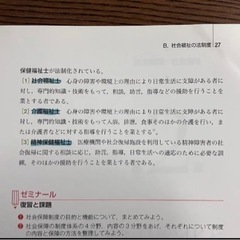 B. 社会福祉の法制度 27
保健福祉士が法制化されている。
[1] 社会福祉士 心身の障害や環境上の理由により日常生活に支障がある者に
対し、専門的知識・技術をもって、相談、助言、指導などの援助を行うこと
を業とする者である。
[2] 介護福祉士 心身の障害や環境上の理由により日常生活に支障がある者に
対し、専門的知識・技術をもって入浴、排泄、食事そのほかの介護を行い、ま
たは介護者などに対する指導を行うことを業とする者である。
[3] 精神保健福祉士 医療機関や社会復帰施設を利用している精神障害者の社
会復帰に関する相談に応じ、助言、指導、日常生活への適応のために必要な訓
練、そのほかの援助を行うことを業とする者である。
ゼミナール
復習と課題
❶ 社会保障制度の目的と機能について、まとめてみよう。
❷ 社会保障の制度体系の4分野、内容の3分野をあげ、それぞれについて制度
の内容と保障の方法を整理してみよう。